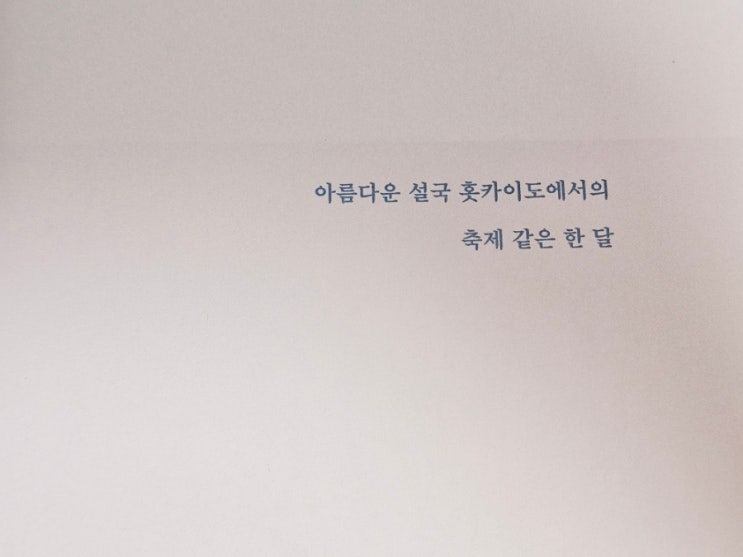 아름다운 설국 홋카이도에서의
축제 같은 한 달